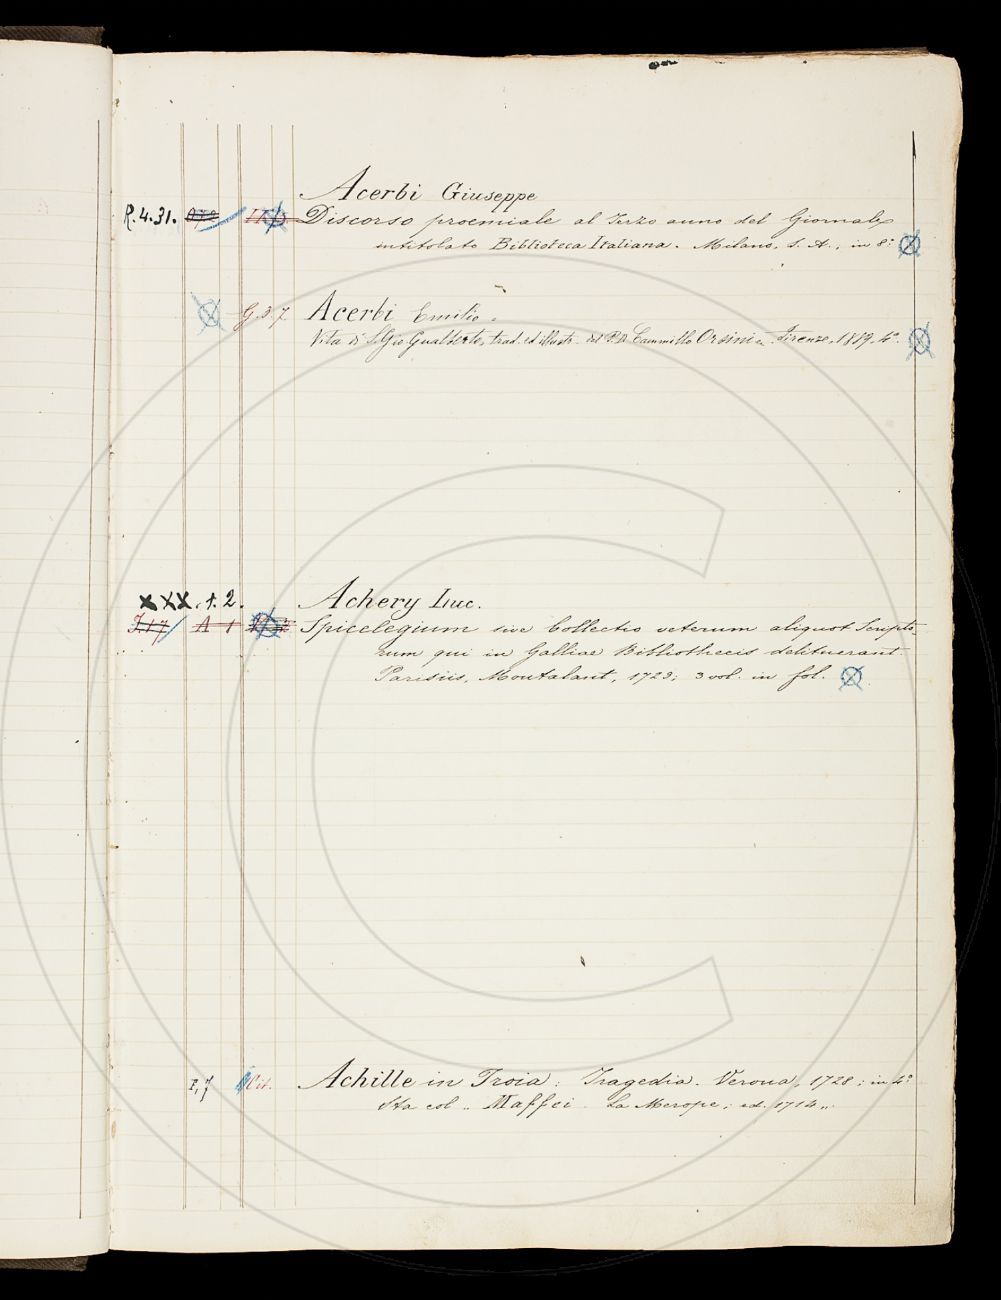 Acerbi Giuseppe
R.4.31. Discorso proemiale al Terzo anno del Giornale
intitolato Biblioteca Italiana. Milano, s. A., in 8°
G.3.7 Acerbi Emilio.
Vita di S. Gio Gualberto, trad. ed illustr. dal P.D. Cammillo Orsini. Firenze, 1819. 4°.
XXX.1.2. Achery Luc.
I.17 A 1 Spicelegium sive Collectio veterum aliquot Scripto-
rum qui in Galliae Bibliothecis delituerant
Parisiis, Montalant, 1723; 3 vol. in fol.
I,7 Cit. Achille in Troia: Tragedia. Verona, 1728; in 4°
Sta col „ Maffei. La Merope; ed. 1714„